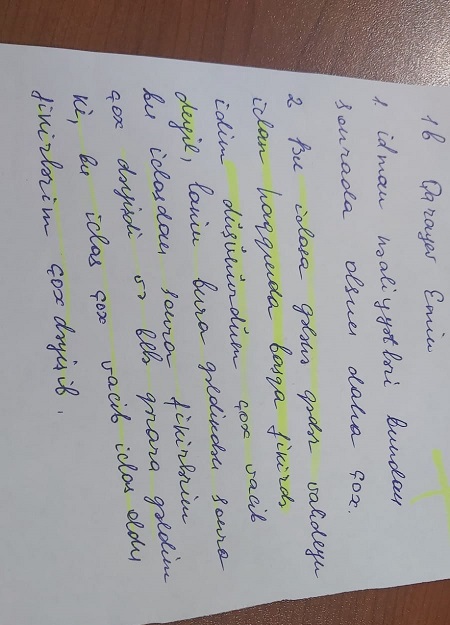 1b Qarayev Emin
1. idman fəaliyyətləri bundan
sonrada olsun daha çox.
2 Bu iclasa gələnə qədər valideyn
iclası haqqında başqa fikirdə
idim düşünürdüm çox vacib
deyil, lakin bura gəldikdən sonra
bu iclasdan sonra fikirlərim
çox dəyişdi və belə qərara gəldim
ki, bu iclas çox vacib iclas oldu
fikirlərim çox dəyişib.